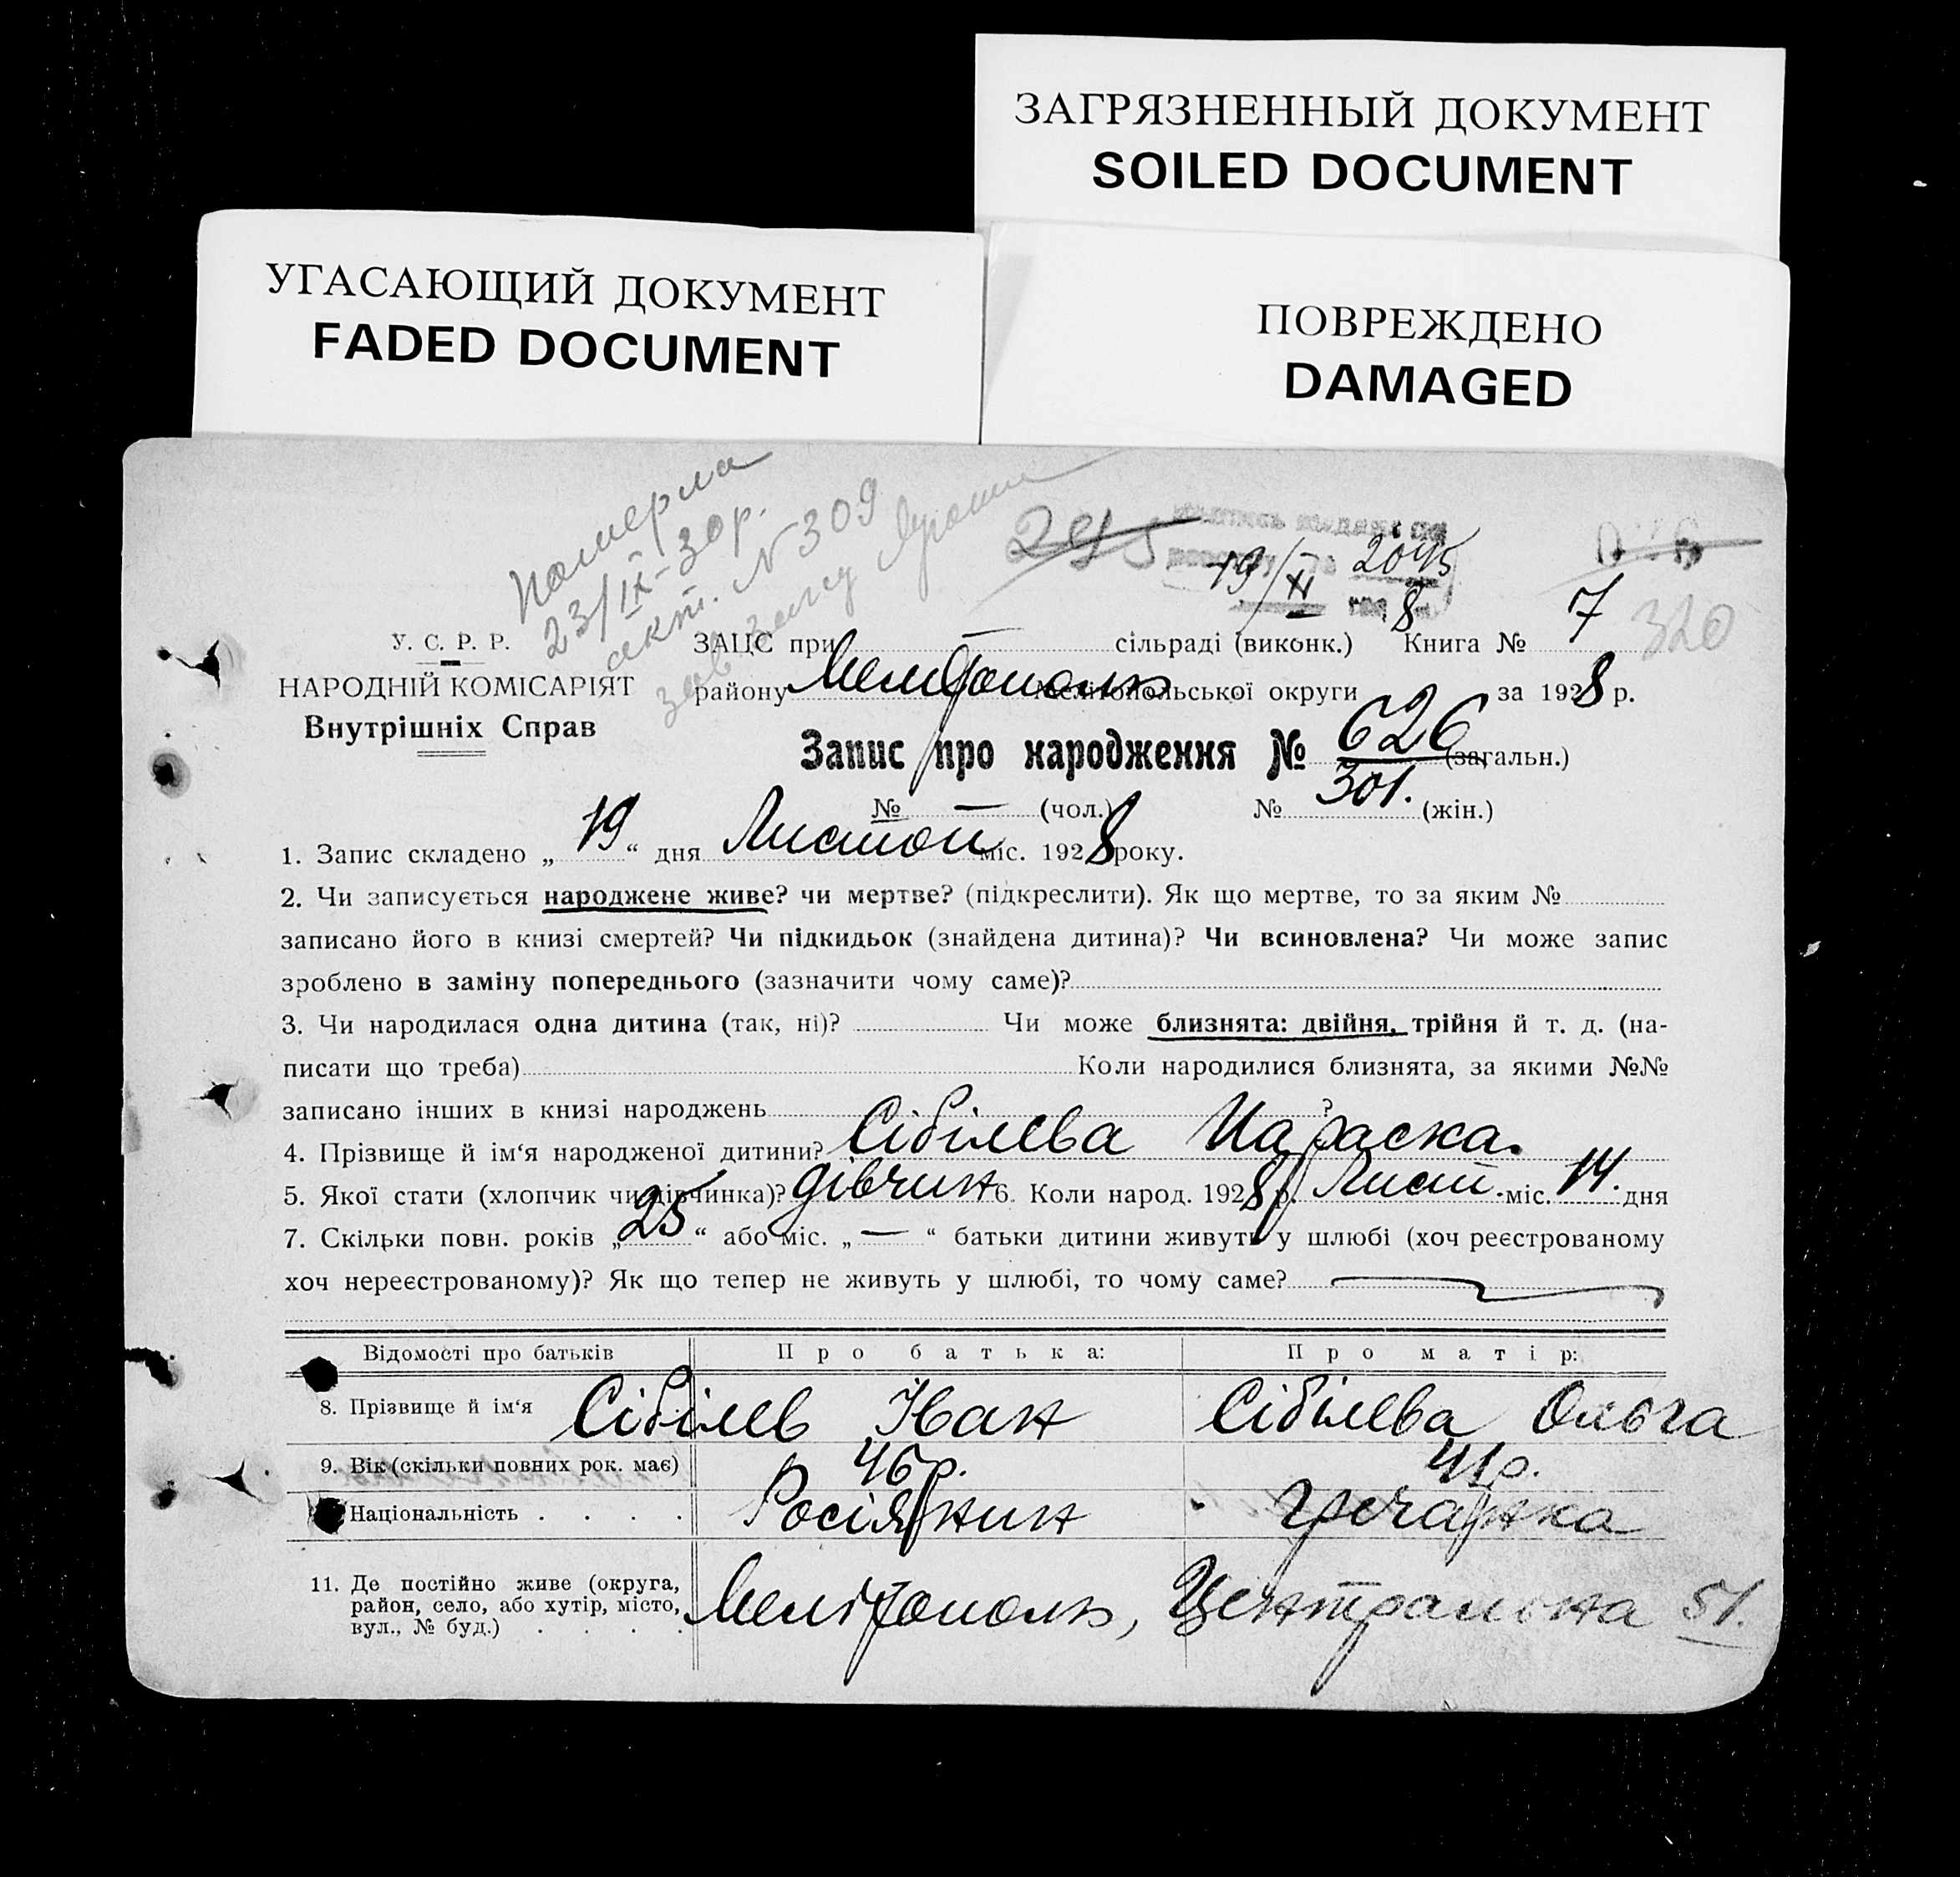 ЗАГРЯЗНЕННЫЙ ДОКУМЕНТ
SOILED DOCUMENT
УГАСАЮЩИЙ ДОКУМЕНТ
FADED DOCUMENT
ПОВРЕЖДЕНО
DAMAGED
Померла
23/IX-30р.
акт. №309
295
19/XI 2045
8
320
У. С. Р. Р.
НАРОДНІЙ КОМІСАРІЯТ
Внутрішніх Справ
ЗАЦС при — сільраді (виконк.) Книга № 7
району Мелітополь Мелітопольської округи за 1928 р.
Запис про народження № 626 (загальн.)
№ — (чол.) № 301. (жін.)
1. Запис складено „19“ дня Листоп міс. 1928 року.
2. Чи записується народжене живе? чи мертве? (підкреслити). Як що мертве, то за яким №
записано його в книзі смертей? Чи підкидьок (знайдена дитина)? Чи всиновлена? Чи може запис
зроблено в заміну попереднього (зазначити чому саме)?
3. Чи народилася одна дитина (так, ні)? Чи може близнята: двійня, трійня й т. д. (на-
писати що треба) Коли народилися близнята, за якими №№
записано інших в книзі народжень ?
4. Прізвище й ім‘я народженої дитини? Сібілєва Параска.
5. Якої стати (хлопчик чи дівчинка)? дівчин 6. Коли народ. 1928 р. Лист. міс. 14. дня
7. Скільки повн. років „25“ або міс. „—“ батьки дитини живуть у шлюбі (хоч реєстрованому
хоч нереєстрованому)? Як що тепер не живуть у шлюбі, то чому саме?
Відомості про батьків Про батька: Про матір:
8. Прізвище й ім‘я Сібілєв Іван Сібілєва Ольга
9. Вік (скільки повних рок. має) 46 р. 41 р.
Національність . . . . Росіянин гречанка
11. Де постійно живе (округа,
район, село, або хутір, місто,
вул., № буд.) . . . . Мелітополь, Центральна 51.